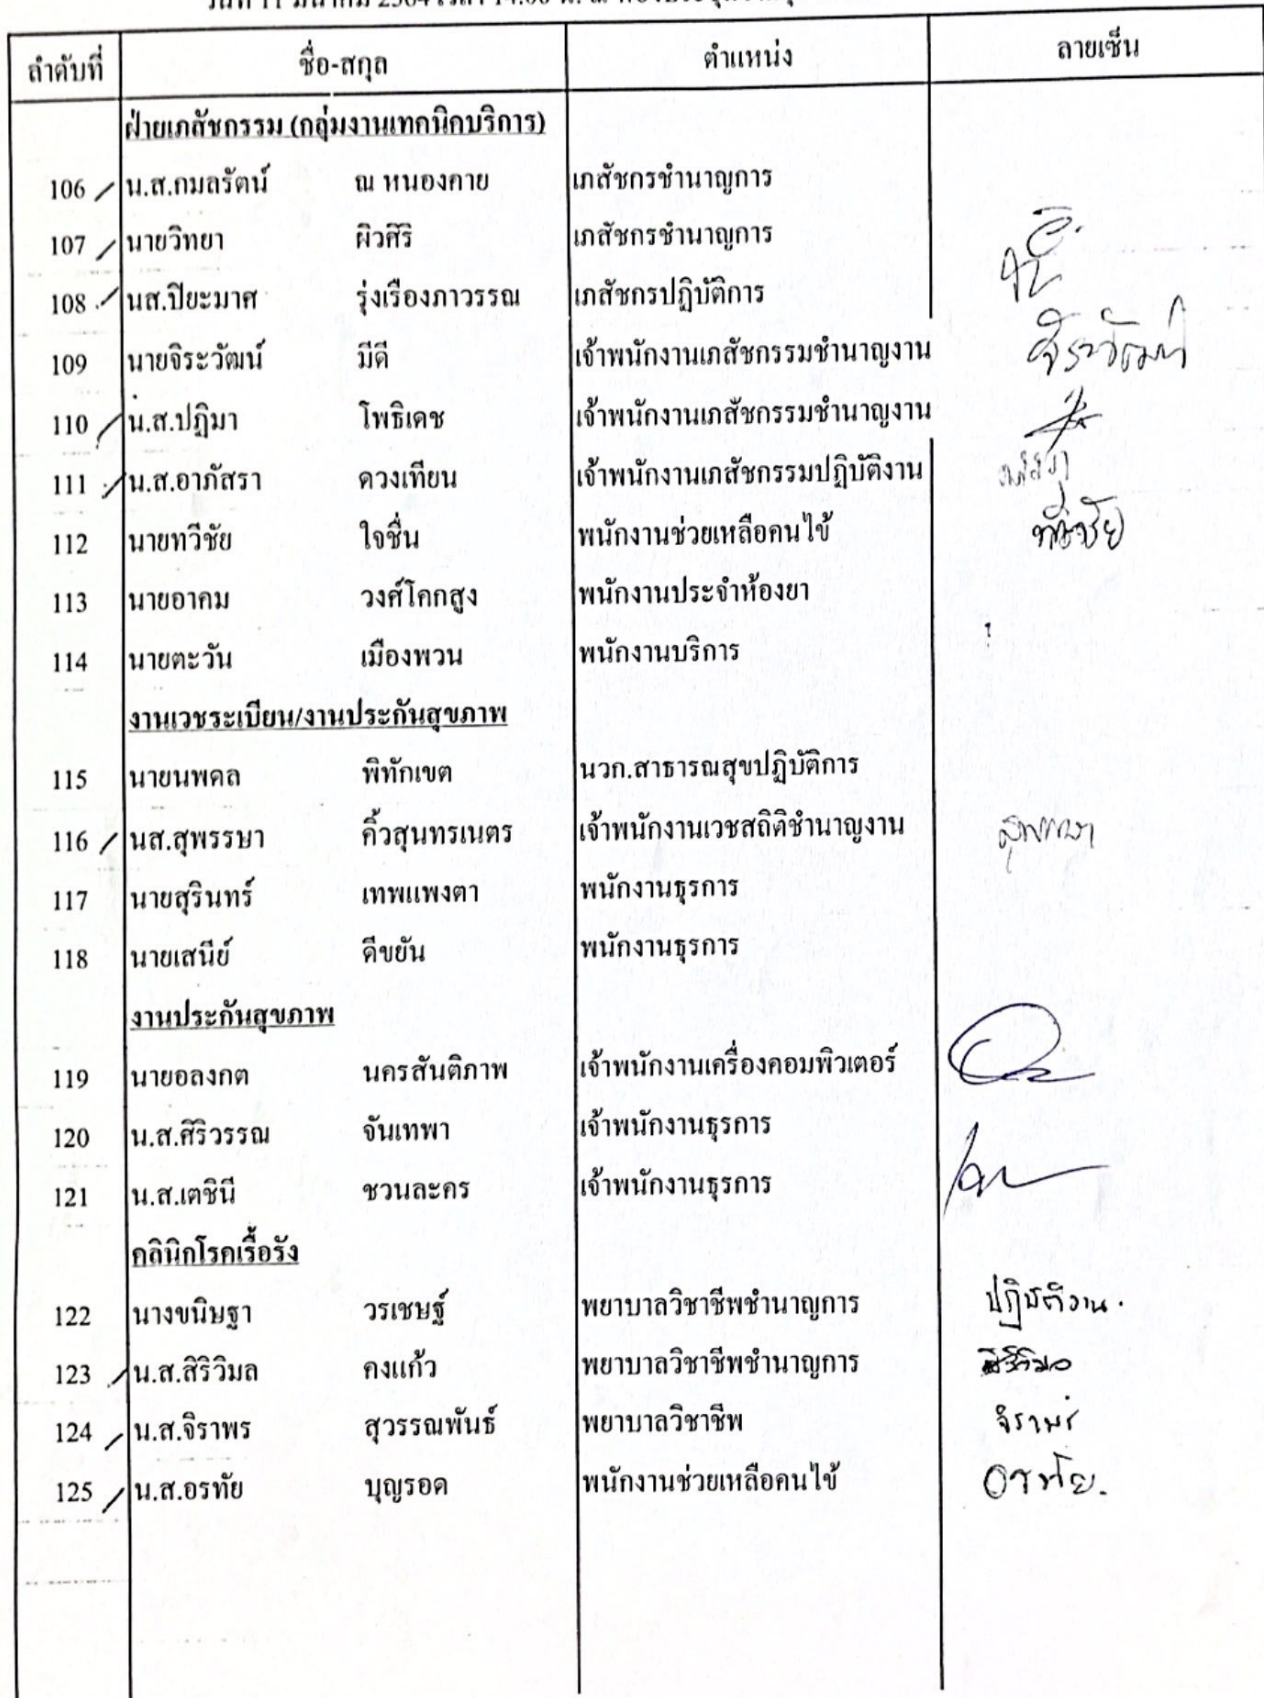 ลำดับที่ ชื่อ-สกุล ตำแหน่ง ลายเซ็น
ฝ่ายเภสัชกรรม (กลุ่มงานเทคนิคบริการ)
106 น.ส.กมลรัตน์ ณ หนองคาย เภสัชกรชำนาญการ
107 นายวิทยา ผิวศิริ เภสัชกรชำนาญการ
108 นส.ปิยะมาศ รุ่งเรืองภาวรรณ เภสัชกรปฏิบัติการ
109 นายจิระวัฒน์ มีดี เจ้าพนักงานเภสัชกรรมชำนาญงาน จิระวัฒน์
110 น.ส.ปฏิมา โพธิเดช เจ้าพนักงานเภสัชกรรมชำนาญงาน
111 น.ส.อาภัสรา ดวงเทียน เจ้าพนักงานเภสัชกรรมปฏิบัติงาน
112 นายทวีชัย ใจชื่น พนักงานช่วยเหลือคนไข้ ทวีชัย
113 นายอาคม วงศ์โคกสูง พนักงานประจำห้องยา
114 นายตะวัน เมืองพวน พนักงานบริการ
งานเวชระเบียน/งานประกันสุขภาพ
115 นายนพดล พิทักเขต นวก.สาธารณสุขปฏิบัติการ
116 นส.สุพรรษา คิ้วสุนทรเนตร เจ้าพนักงานเวชสถิติชำนาญงาน สุพรรษา
117 นายสุรินทร์ เทพแพงตา พนักงานธุรการ
118 นายเสนีย์ ดีขยัน พนักงานธุรการ
งานประกันสุขภาพ
119 นายอลงกต นครสันติภาพ เจ้าพนักงานเครื่องคอมพิวเตอร์
120 น.ส.ศิริวรรณ จันเทพา เจ้าพนักงานธุรการ
121 น.ส.เตชินี ชวนละคร เจ้าพนักงานธุรการ
คลินิกโรคเรื้อรัง
122 นางขนิษฐา วรเชษฐ์ พยาบาลวิชาชีพชำนาญการ ปฏิบัติงาน.
123 น.ส.สิริวิมล คงแก้ว พยาบาลวิชาชีพชำนาญการ สิริวิมล
124 น.ส.จิราพร สุวรรณพันธ์ พยาบาลวิชาชีพ จิราพร
125 น.ส.อรทัย บุญรอด พนักงานช่วยเหลือคนไข้ อรทัย.